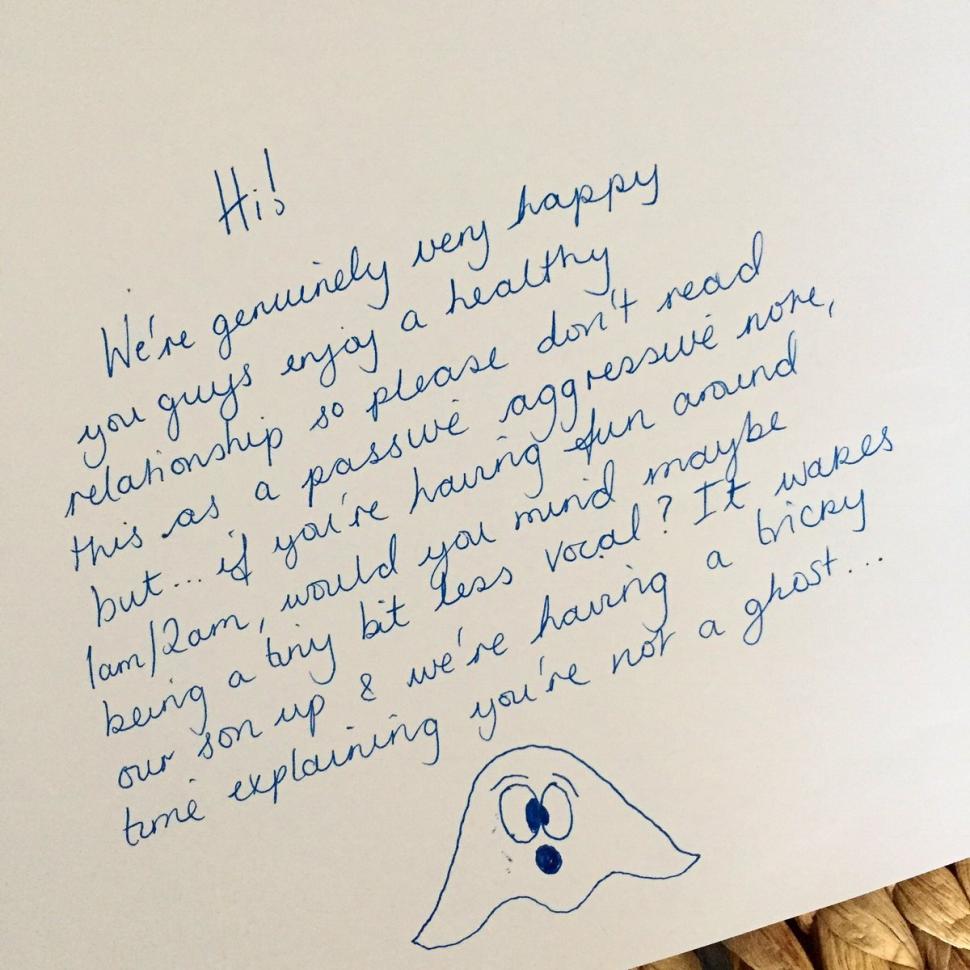 Hi!
We're genuinely very happy
you guys enjoy a healthy
relationship so please don't read
this as a passive aggressive note,
but... if you're having fun around
1am/2am, would you mind maybe
being a tiny bit less vocal? It wakes
our son up & we're having a tricky
time explaining you're not a ghost...